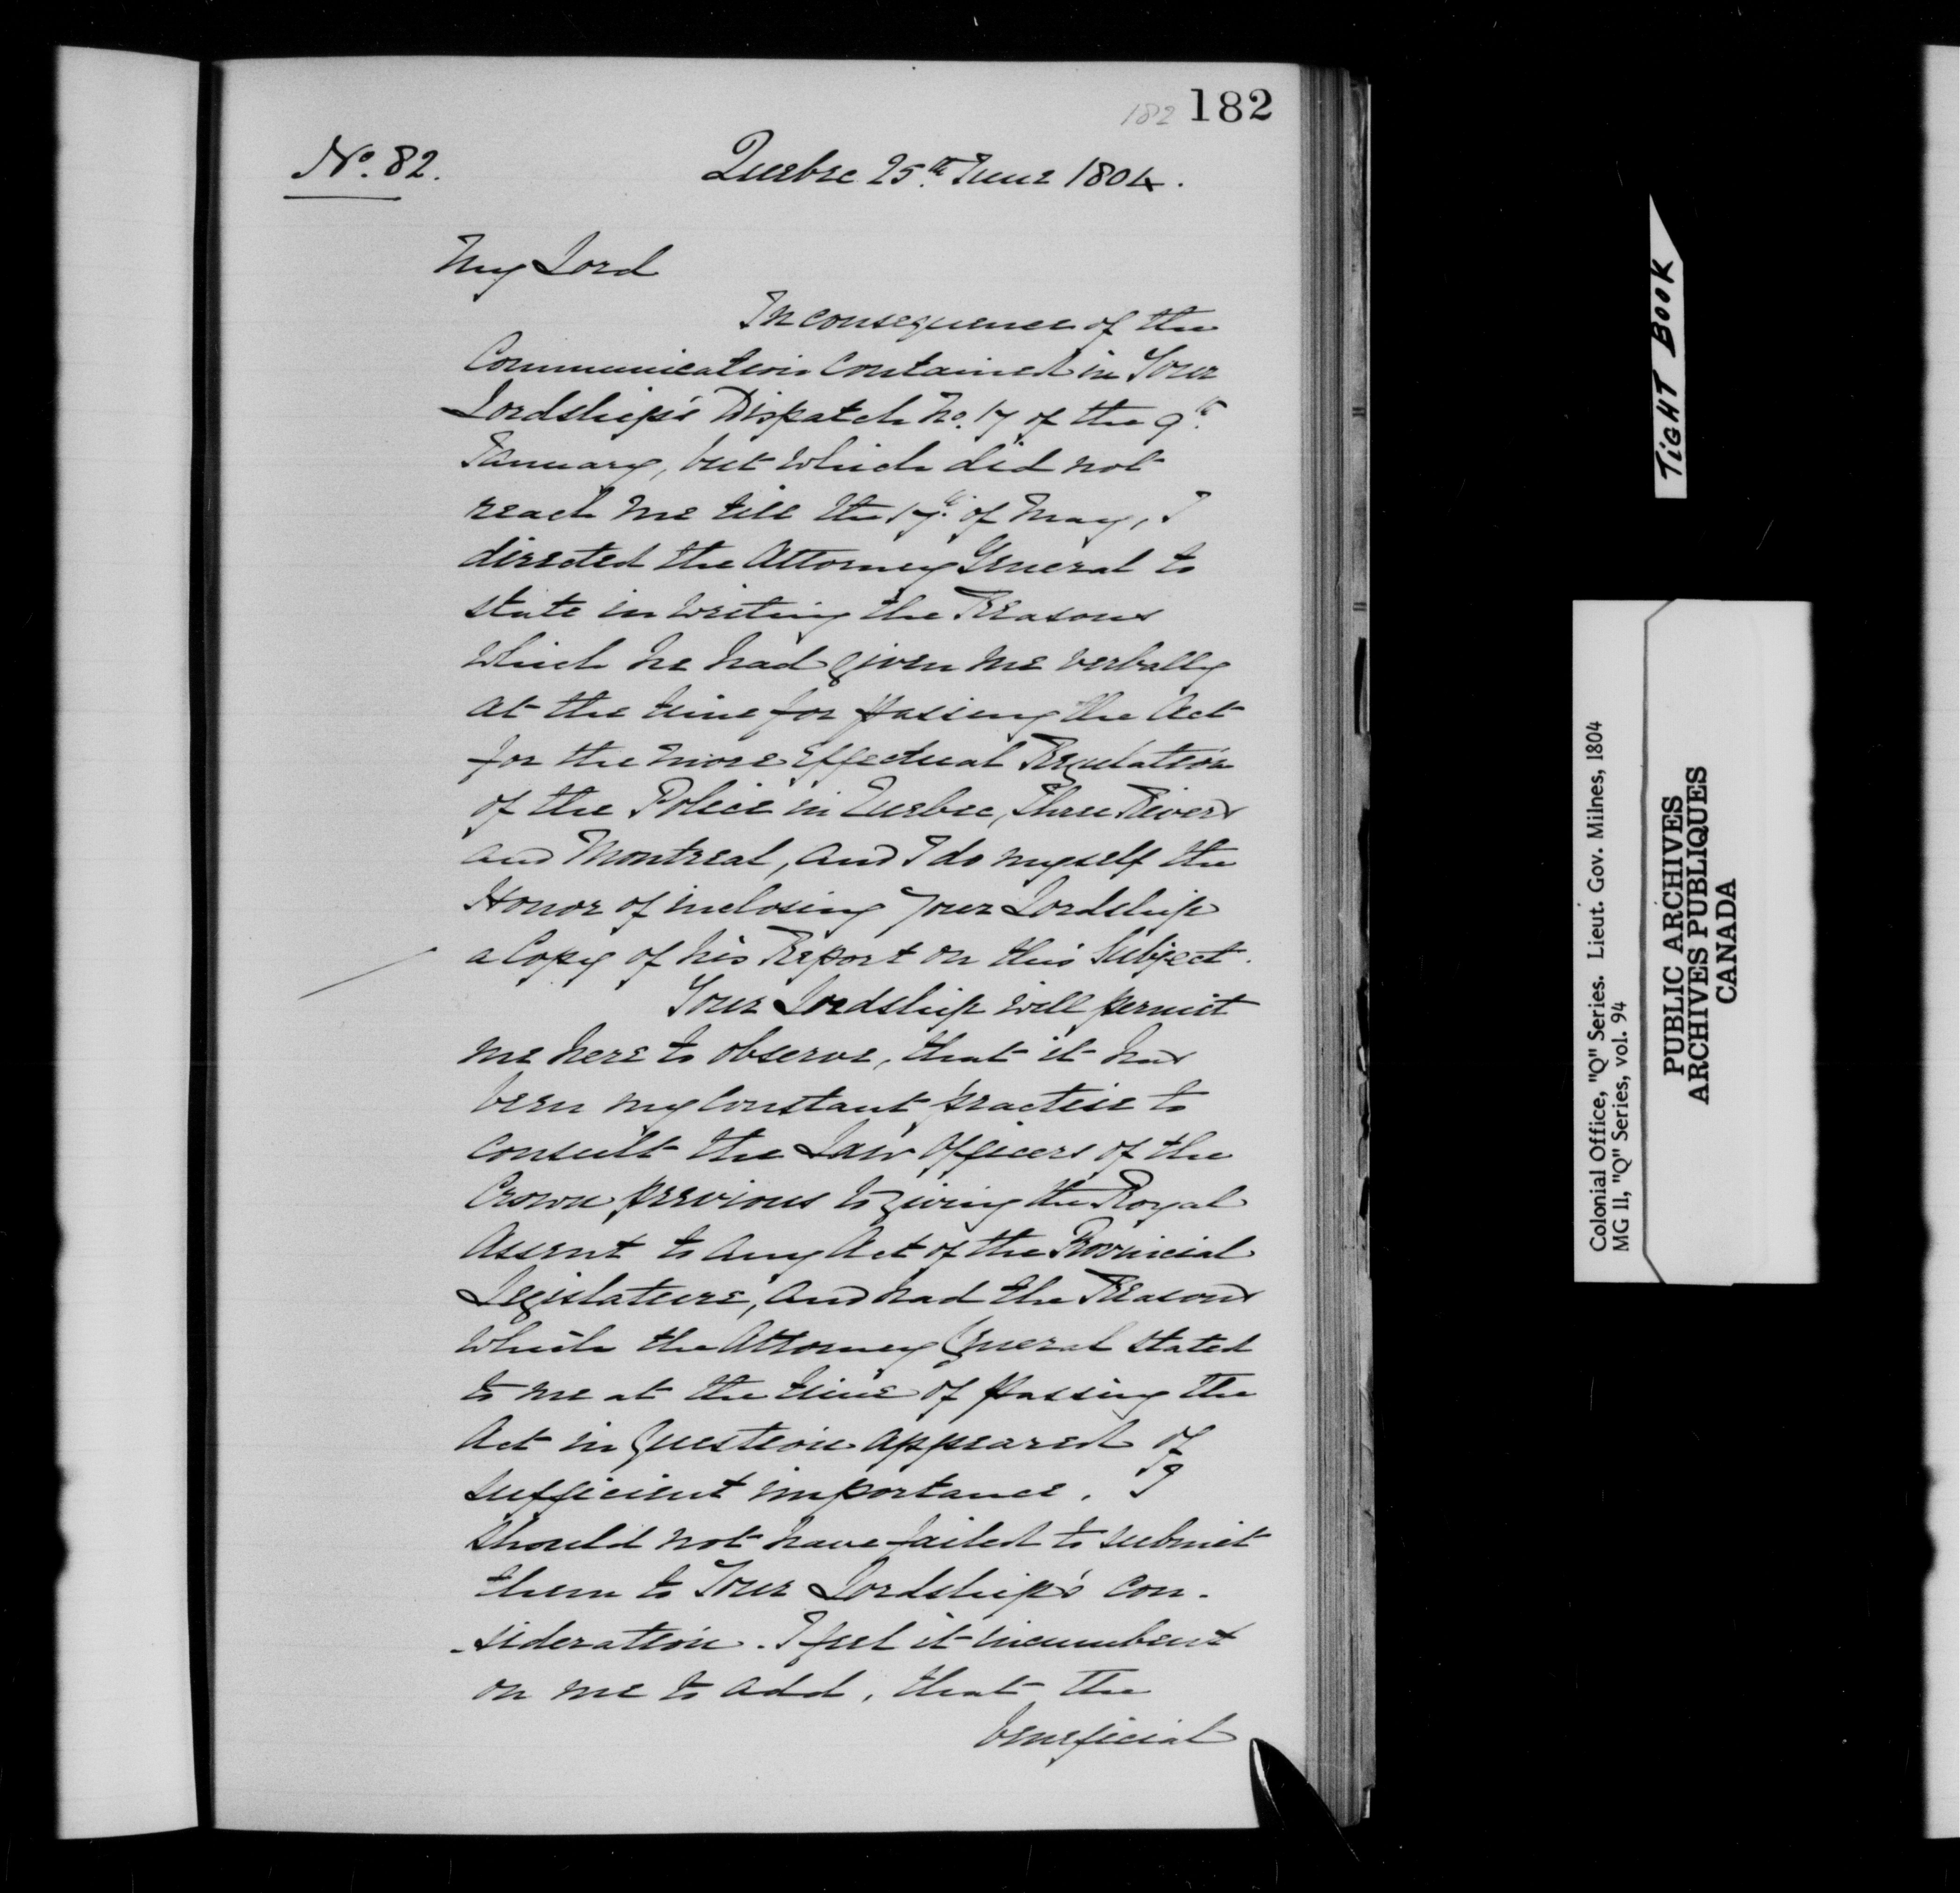 182 182
No. 82.
Quebec 25.th June 1804.
My Lord
In consequence of the
Communication contained in Your
Lordship's Dispatch No. 17 of the 9th.
January, but which did not
reach me till the 17th. of May, I
directed the Attorney General to
state in writing the Reasons
which he had given me verbally
at the time for passing the Act
for the more effectual Regulation
of the Police in Quebec, Three Rivers
and Montreal, and I do myself the
Honor of inclosing Your Lordship
a Copy of his Report on this Subject.
Your Lordship will permit
me here to observe, that it has
been my constant practice to
consult the Law Officers of the
Crown previous to giving the Royal
Assent to any Act of the Provincial
Legislature, and had the Reasons
which the Attorney General stated
to me at the time of passing the
Act in Question appeared of
sufficient importance, I
should not have failed to submit
them to Your Lordship's con-
-sideration. I feel it incumbent
on me to add, that the
beneficial
TIGHT BOOK
Colonial Office, "Q" Series. Lieut. Gov. Milnes, 1804
MG 11, "Q" Series, vol. 94
PUBLIC ARCHIVES
ARCHIVES PUBLIQUES
CANADA